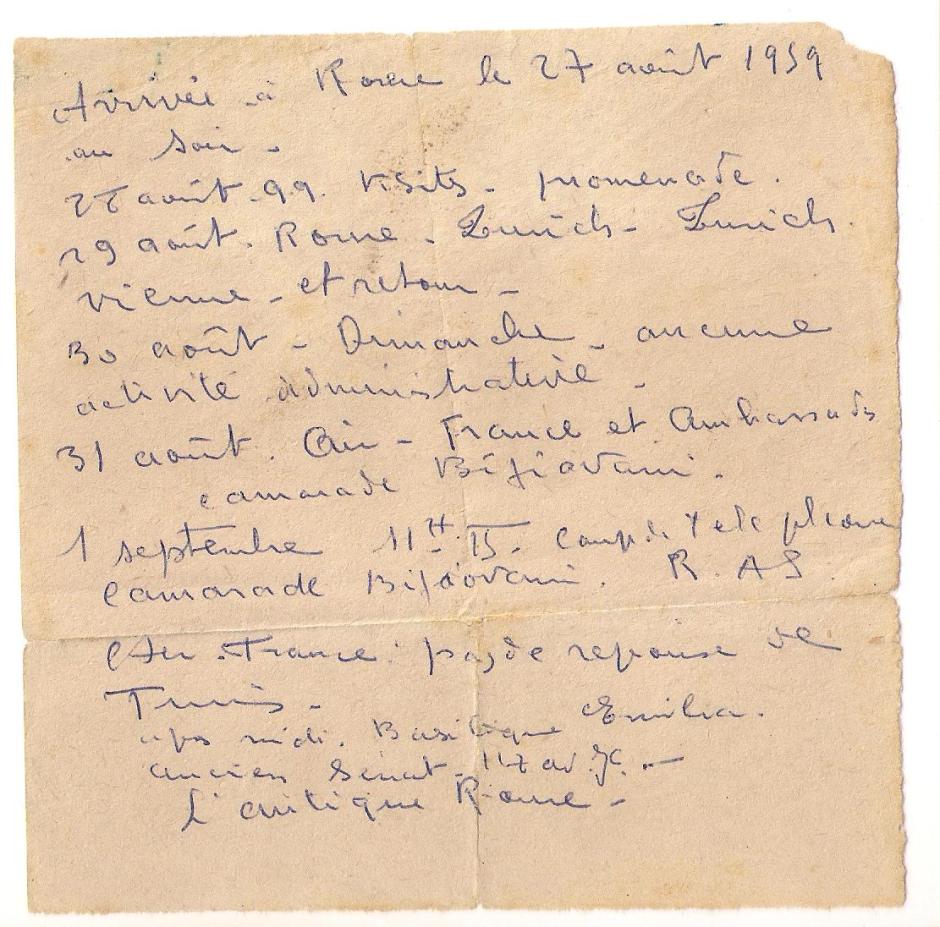 Arrivée à Rome le 27 août 1959
au soir -
28 août. 99. Visites - promenade.
29 août. Rome - Zurich - Zurich.
Vienne - et retour -
30 août - Dimanche - aucune
activité administrative -
31 août. Air - France et Ambassade
camarade Bigiovani.
1 septembre 11H 15. Coup de téléphone
Camarade Bigiovani. R. A S.
Air. France: pas de reponse de
Tunis -
aps midi. Basilique Emilia.
ancien Senat - 117 av. JC. -
L'antique Rome -